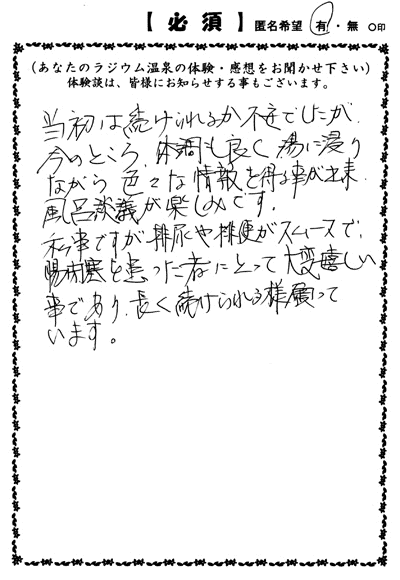 【必須】 匿名希望 有・無 〇印
(あなたのラジウム温泉の体験・感想をお聞かせ下さい)
体験談は、皆様にお知らせする事もございます。
当初は続けられるか不安でしたが
今のところ、体調も良く湯に浸り
ながら色々な情報を得る事が出来
風呂談義が楽しみです。
私事ですが排尿や排便がスムースで、
腸閉塞を患った者にとって大変嬉しい
事であり、長く続けられる様願って
います。